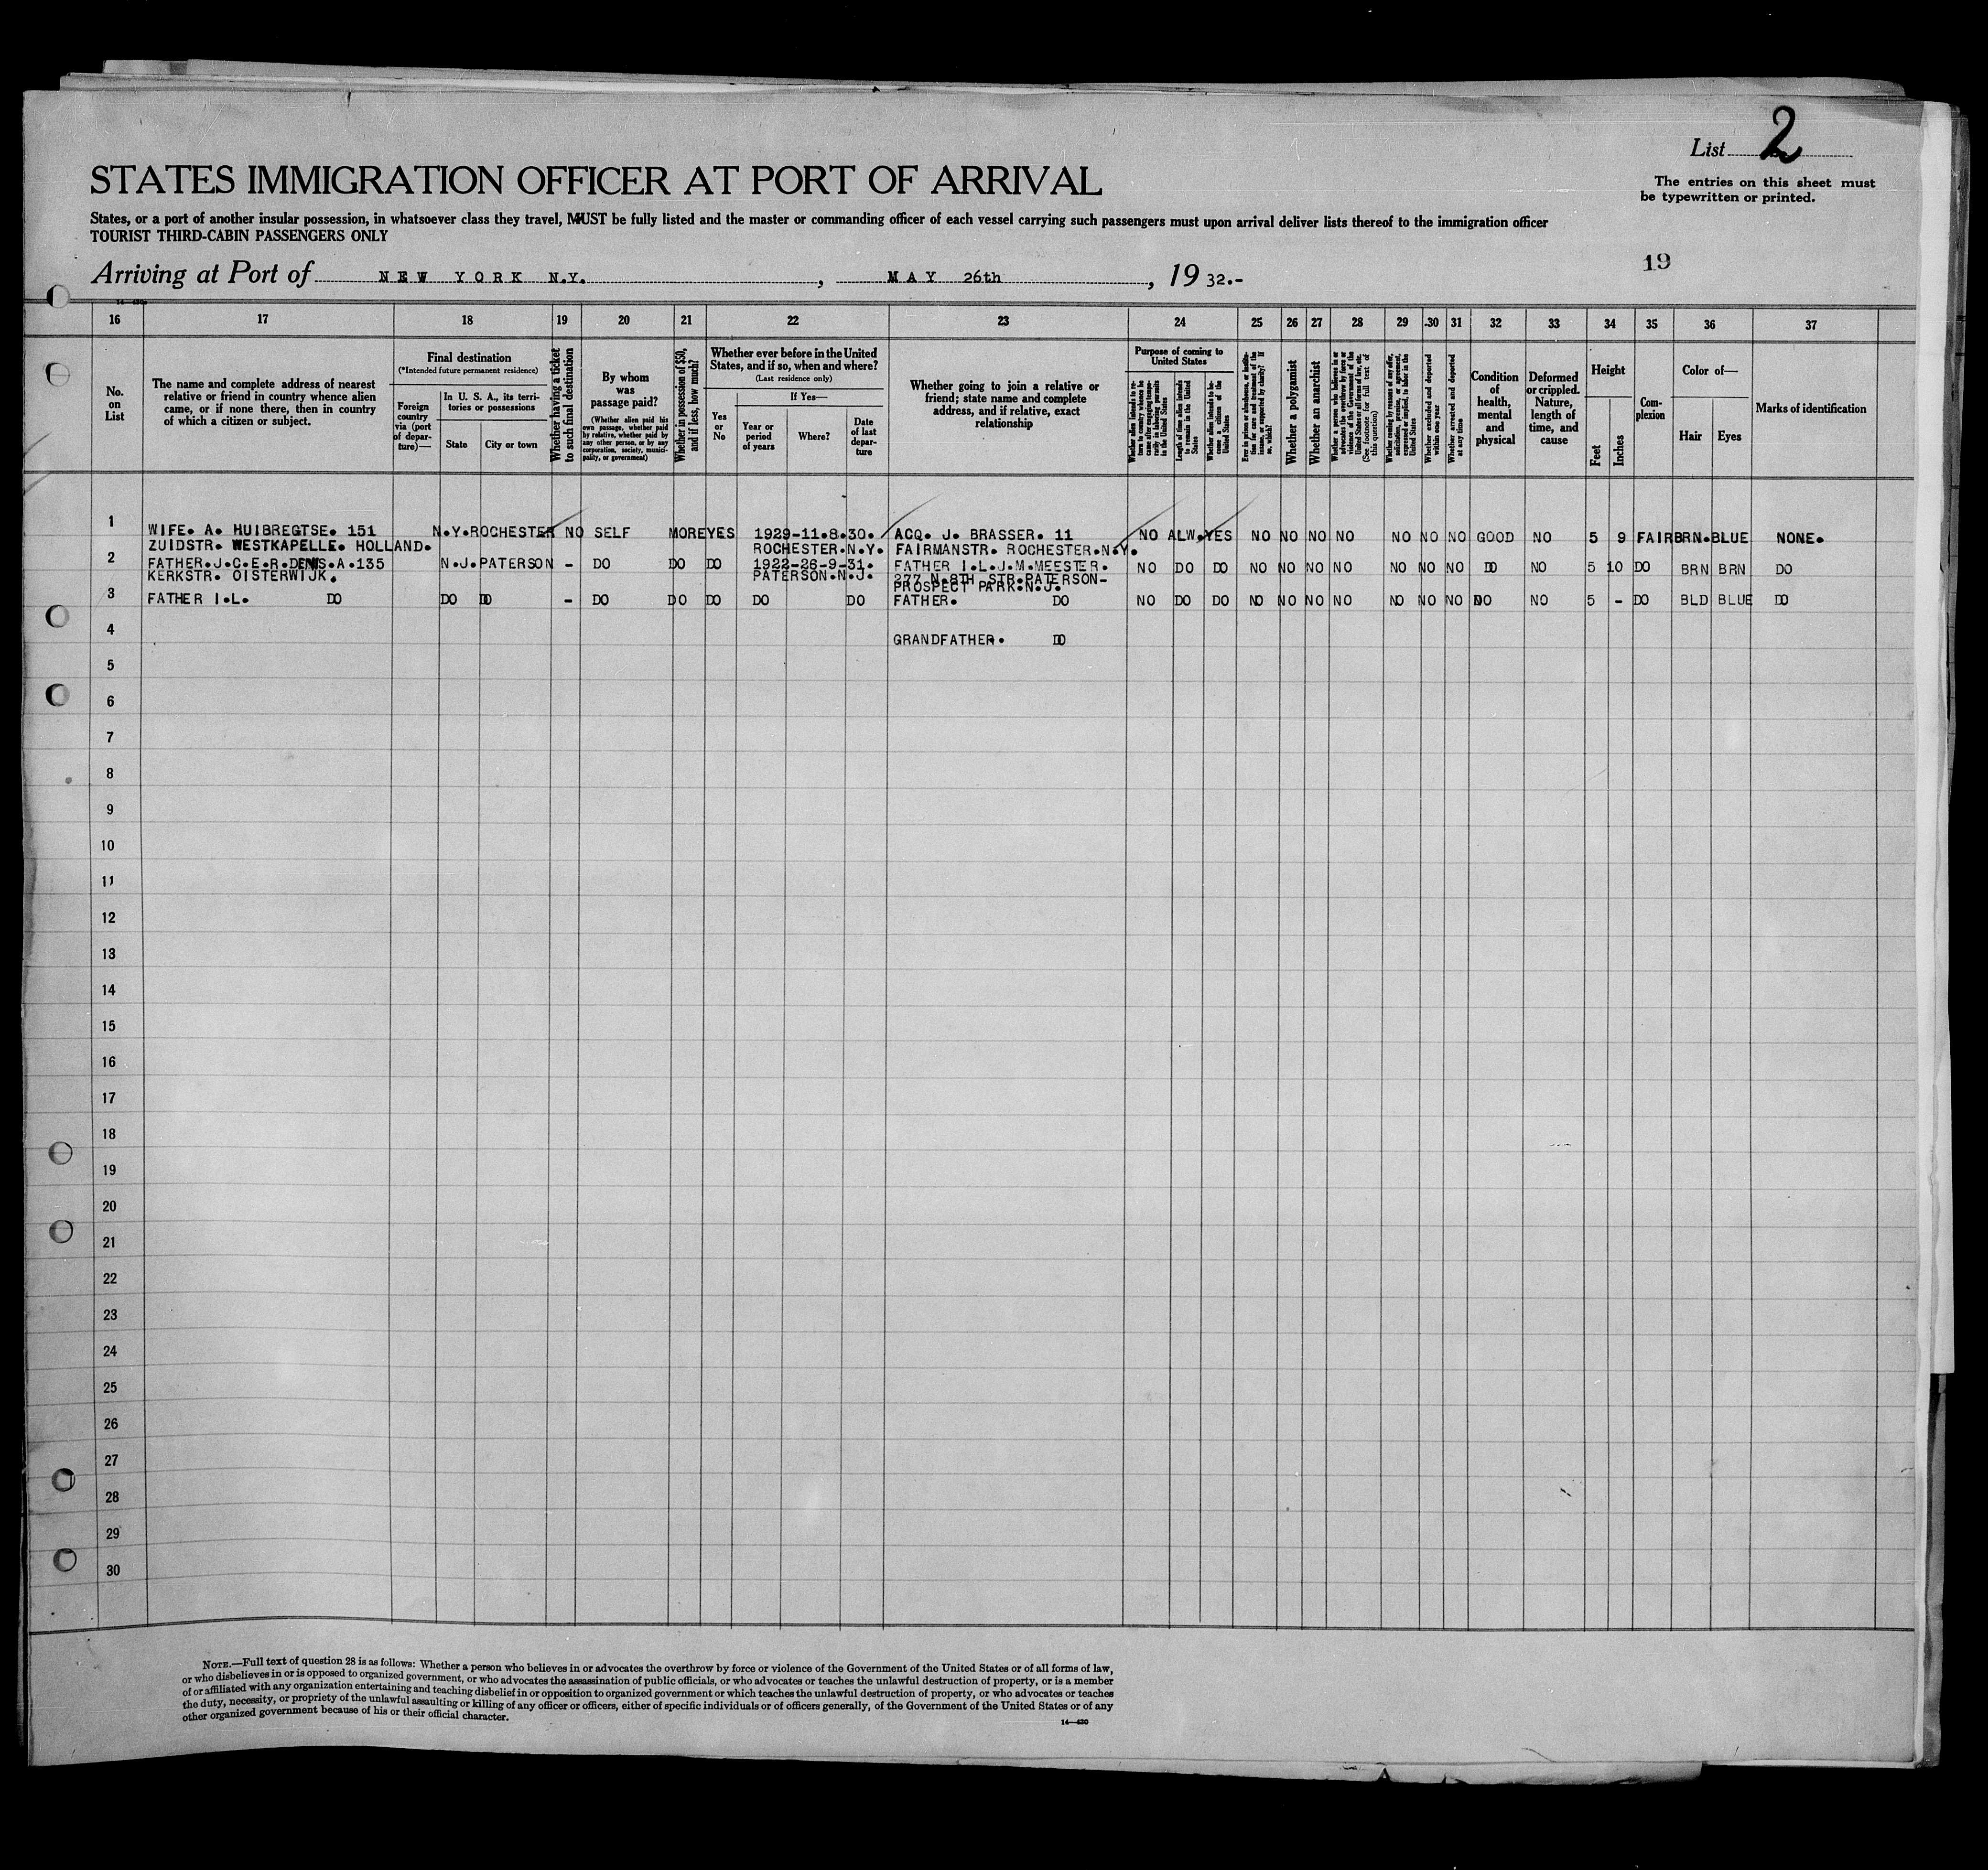 List 2
The entries on this sheet must
be typewritten or printed.
STATES IMMIGRATION OFFICER AT PORT OF ARRIVAL
States, or a port of another insular possession, in whatsoever class they travel, MUST be fully listed and the master or commanding officer of each vessel carrying such passengers must upon arrival deliver lists thereof to the immigration officer
TOURIST THIRD-CABIN PASSENGERS ONLY
19
Arriving at Port of NEW YORK N.Y., MAY 26th, 19 32.-
16 17 18 19 20 21 22 23 24 25 26 27 28 29 30 31 32 33 34 35 36 37
No.
on
List
The name and complete address of nearest
relative or friend in country whence alien
came, or if none there, then in country
of which a citizen or subject.
Final destination
(*Intended future permanent residence)
Foreign
country
via (port
of depar-
ture)—
In U. S. A., its terri-
tories or possessions
State
City or town
Whether having a ticket
to such final destination
By whom
was
passage paid?
(Whether alien paid his
own passage, whether paid
by relative, whether paid by
any other person, or by any
corporation, society, munici-
pality, or government)
Whether in possession of $50,
and if less, how much?
Whether ever before in the United
States, and if so, when and where?
(Last residence only)
Yes
or
No
If Yes—
Year or
period
of years
Where?
Date
of last
depar-
ture
Whether going to join a relative or
friend; state name and complete
address, and if relative, exact
relationship
Purpose of coming to
United States
Length of time alien intends
to remain in the United
States
Whether alien intends to be-
come a citizen of the
United States
Whether a polygamist
Whether an anarchist
(See footnote for full text of
this question)
Whether excluded and deported
within one year
Whether arrested and deported
at any time
Condition
of
health,
mental
and
physical
Deformed
or crippled.
Nature,
length of
time, and
cause
Height
Feet
Inches
Com-
plexion
Color of—
Hair
Eyes
Marks of identification
1 WIFE. A. HUIBREGTSE. 151 N.Y.ROCHESTER NO SELF MORE YES 1929-11.8.30. ACQ. J. BRASSER. 11 NO ALW. YES NO NO NO NO NO NO NO GOOD NO 5 9 FAIR BRN. BLUE NONE.
ZUIDSTR. WESTKAPELLE. HOLLAND. ROCHESTER.N.Y. FAIRMANSTR. ROCHESTER.N.Y.
2 FATHER.J.C.E.R.DENIS.A.135 N.J.PATERSON - DO DO DO 1922-26-9-31. FATHER I.L.J.M.MEESTER. NO DO DO NO NO NO NO NO NO NO DO NO 5 10 DO BRN BRN DO
KERKSTR. OISTERWIJK. PATERSON.N.J. 277 N.8TH STR.PATERSON-
PROSPECT PARK.N.J.
3 FATHER I.L. DO DO DO - DO DO DO DO DO FATHER. DO NO DO DO NO NO NO NO NO NO NO DO NO 5 - DO BLD BLUE DO
4 GRANDFATHER. DO
5
6
7
8
9
10
11
12
13
14
15
16
17
18
19
20
21
22
23
24
25
26
27
28
29
30
NOTE.—Full text of question 28 is as follows: Whether a person who believes in or advocates the overthrow by force or violence of the Government of the United States or of all forms of law,
or who disbelieves in or is opposed to organized government, or who advocates the assassination of public officials, or who advocates or teaches the unlawful destruction of property, or is a member
of or affiliated with any organization entertaining and teaching disbelief in or opposition to organized government or which teaches the unlawful destruction of property, or who advocates or teaches
the duty, necessity, or propriety of the unlawful assaulting or killing of any officer or officers, either of specific individuals or of officers generally, of the Government of the United States or of any
other organized government because of his or their official character.
14—430